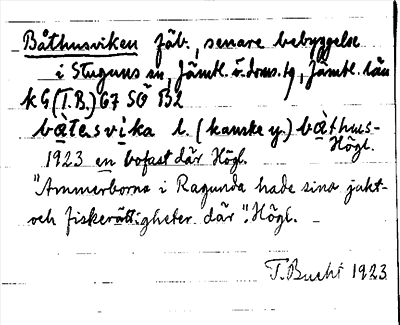 Båthusviken fäb., senare bebyggelse
i Stuguns sn, Jämtl. v. doms. tg, Jämtl. län
k G (T.B.) 67 SÖ B2
bàtesvika l. (kanske y.) bàthus-
Högl.
1923 en bofast där Högl.
"Ammerborna i Ragunda hade sina jakt-
och fiskerättigheter där". Högl.
T. Bucht 1923